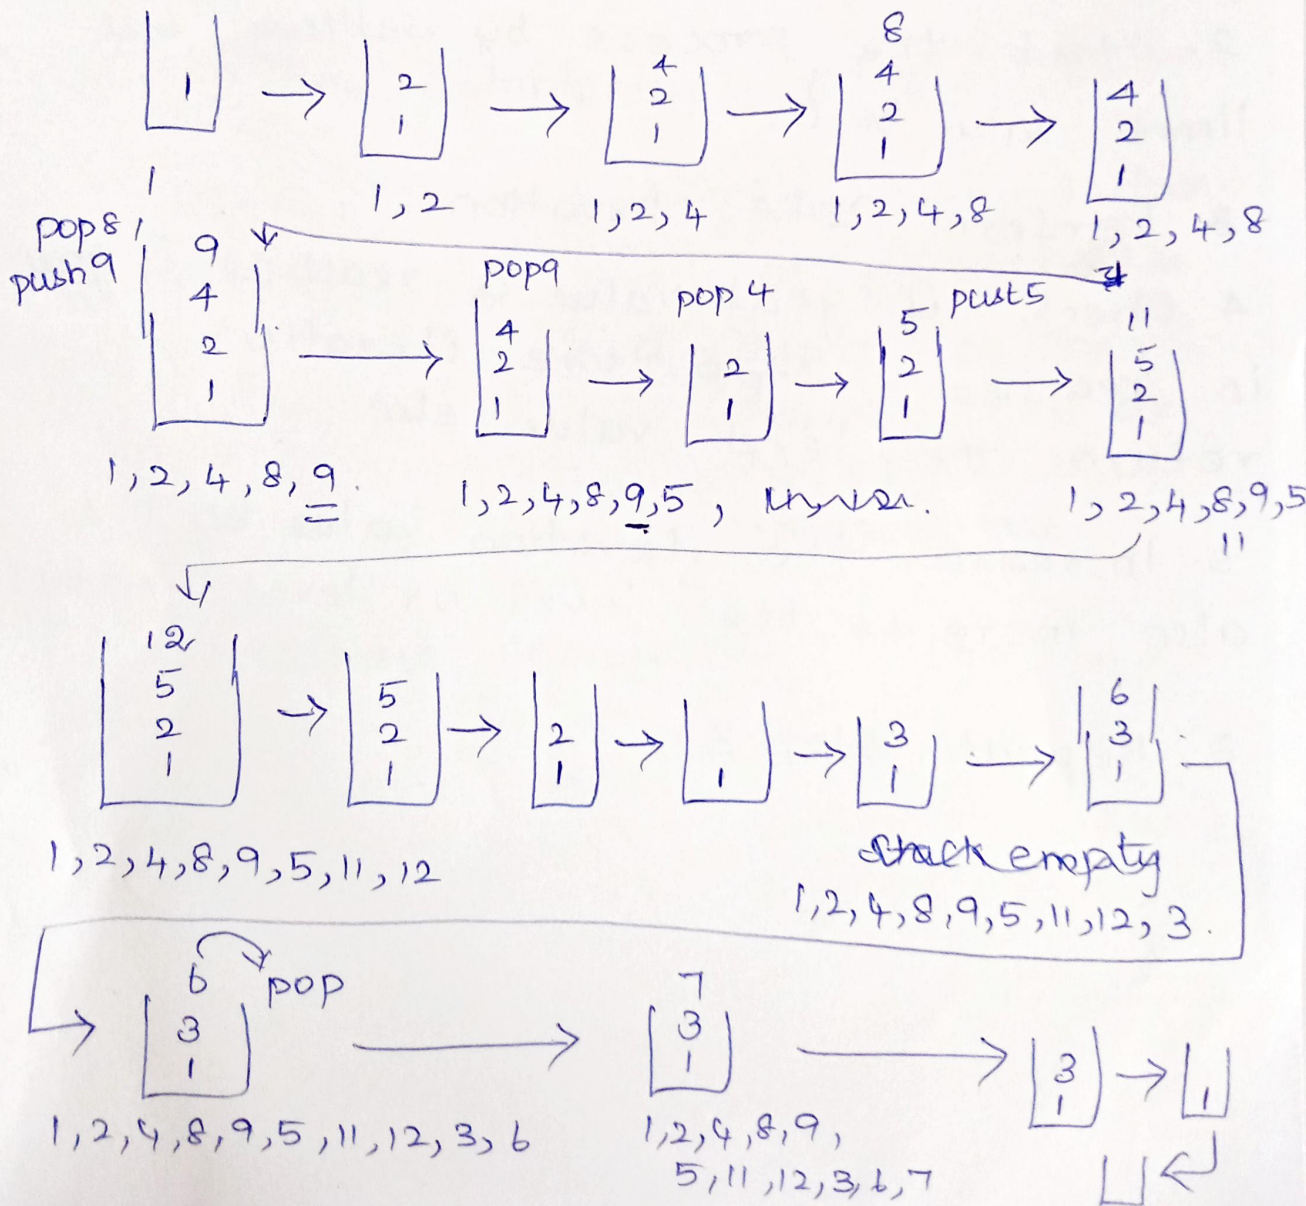 1
2
1
4
2
1
8
4
2
1
4
2
1
1
1, 2
1, 2, 4
1, 2, 4, 8
1, 2, 4, 8
pop 8,
push 9
9
4
2
1
pop 9
4
2
1
pop 4
2
1
push 5
5
2
1
11
5
2
1
1, 2, 4, 8, 9.
1, 2, 4, 8, 9, 5,
1, 2, 4, 8, 9, 5
11
12
5
2
1
5
2
1
2
1
1
3
1
6
3
1
1, 2, 4, 8, 9, 5, 11, 12
Stack empty
1, 2, 4, 8, 9, 5, 11, 12, 3.
6 pop
3
1
7
3
1
3
1
1
1, 2, 4, 8, 9, 5, 11, 12, 3, 6
1, 2, 4, 8, 9,
5, 11, 12, 3, 6, 7